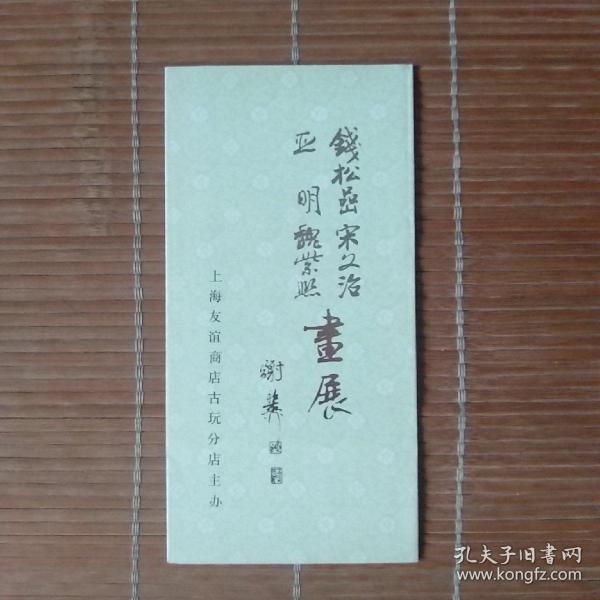 錢松嵒 宋文治
亚 明 魏紫熙
畫展
謝
上海友谊商店古玩分店主办
孔夫子旧书网
www.kongfz.com